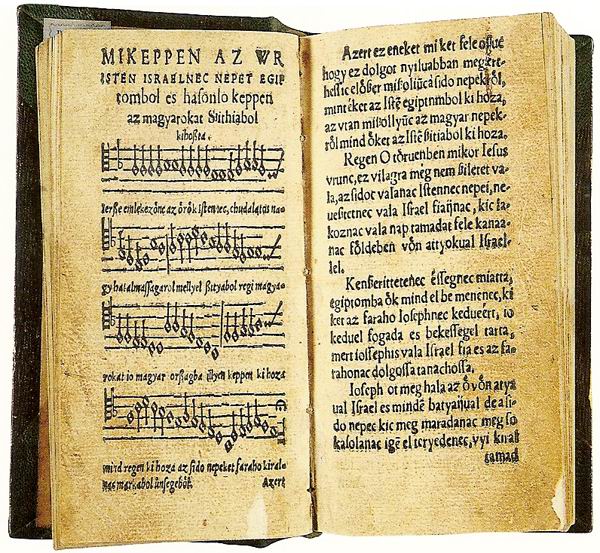 MIKEPPEN AZ WR
ISTEN ISRAELNEC NEPET EGIP
tombol es hasonlo keppen
az magyarokat Siithiabol
kihoßta.
Ierße emlekezönc az örök Istenrec, chudalatus na-
gy hatalmassagarol mellyel ßityabol regi magya-
rokat io magyar orßagba illyen keppen ki hoza
mind regen ki hoza az sido nepeket faraho kiral-
nac markabol
Azert
Azert ez eneket mi ket fele
hogy ez dolgot nyiluabban
elößer miß sido nepekröl,
mint eket az Istē egiptombol ki hoza,
az vtan az magyar nepek-
röl mind öket az Istē ßitiabol ki hoza.
Regen O töruenben mikor Iesus
vrunc, ez vilagra meg nem ßiletet va-
la, az sidot valanac Istennec nepei, ne-
ueßtetnec vala Israel fiaijnac, kic la-
koznac vala nap tamadat fele kanaa-
nac földeben vön attyokual Israel-
lel.
Kenßerittetenec ehssegnec miatta,
egiptomba ök mind el be menenec, ki
ket az faraho Iosephnec kedueert, io
keduel fogada es bekessegel tarta,
mert iosephis vala Israel fia es az fa-
rahonac dolgossa tanachossa,
Ioseph ot meg hala az ö vön atya
ual Israel es mindē batyaiual de a si-
do nepec kic meg maradanac meg so
kasolanac igē el teryedenec, vyi kiral
tamad